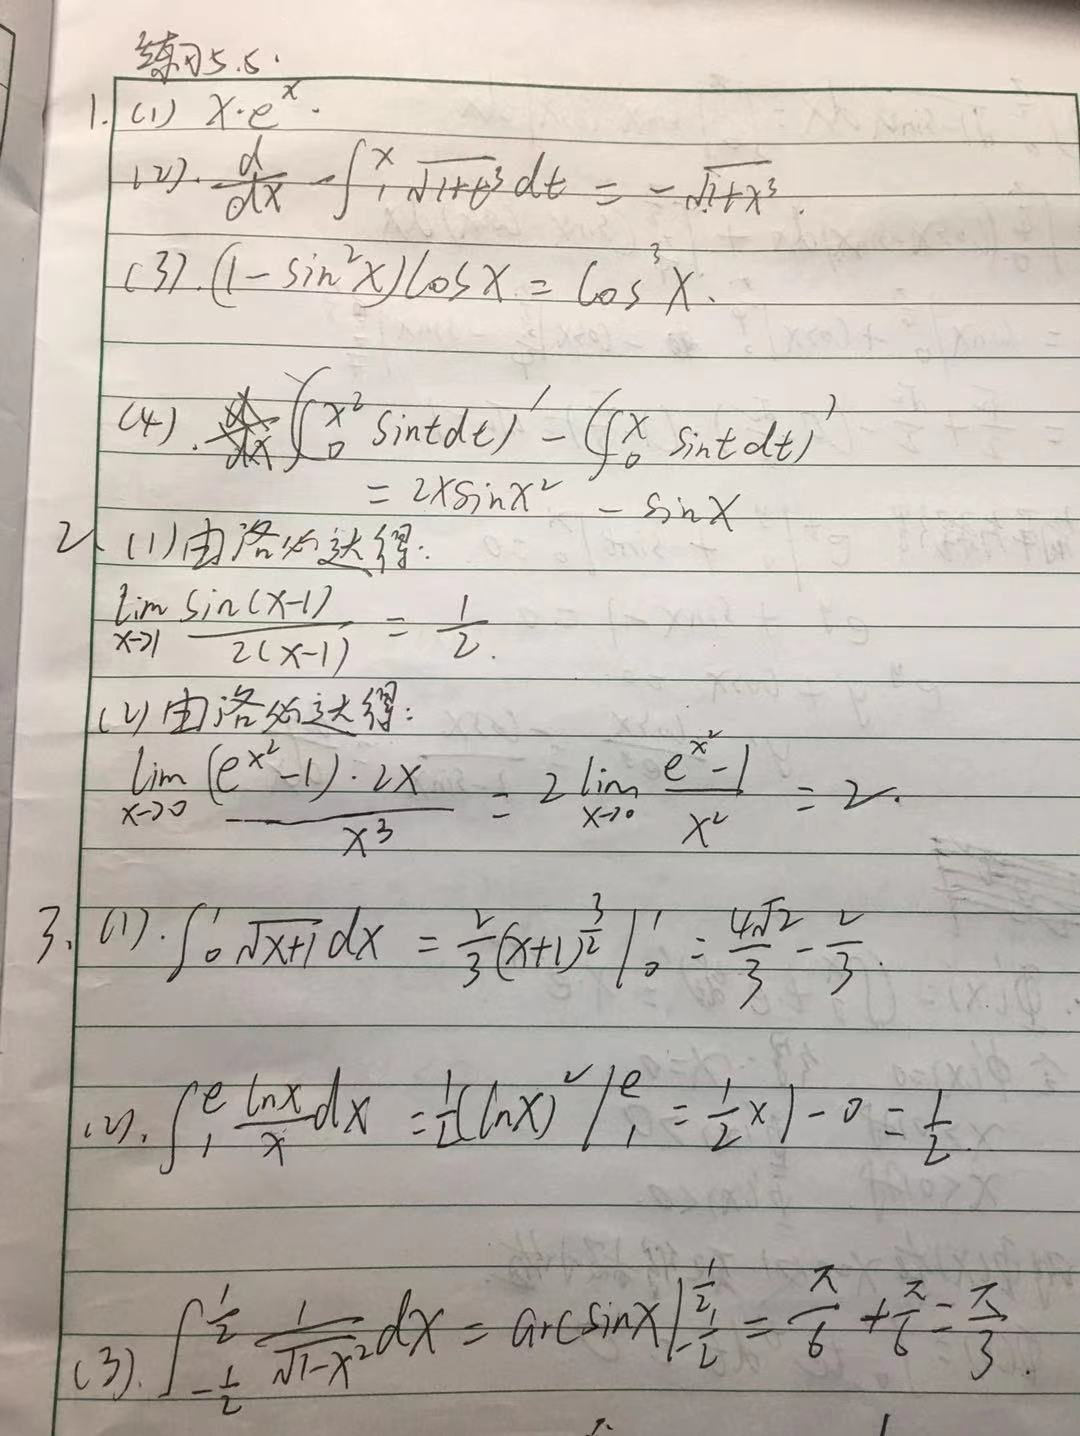 练习5.5.
1. (1) x·eˣ.
(2). d/dx -∫₁ˣ √(1+t³) dt = -√(1+x³).
(3). (1-sin²x)cosx = cos³x.
(4). (∫₀^(x²) sintdt)' - (∫₀ˣ sintdt)'
= 2xsinx² - sinx
2. (1) 由洛必达得:
lim x→1 sin(x-1)/2(x-1) = 1/2.
(2) 由洛必达得:
lim x→0 (e^(x²)-1)·2x/x³ = 2 lim x→0 (e^(x²)-1)/x² = 2.
3. (1). ∫₀¹ √(x+1) dx = 2/3 (x+1)^(3/2) |₀¹ = 4√2/3 - 2/3.
(2). ∫₁ᵉ lnx/x dx = 1/2 (lnx)² |₁ᵉ = 1/2 × 1 - 0 = 1/2.
(3). ∫_(-1/2)^(1/2) 1/√(1-x²) dx = arcsinx |_(-1/2)^(1/2) = π/6 + π/6 = π/3.